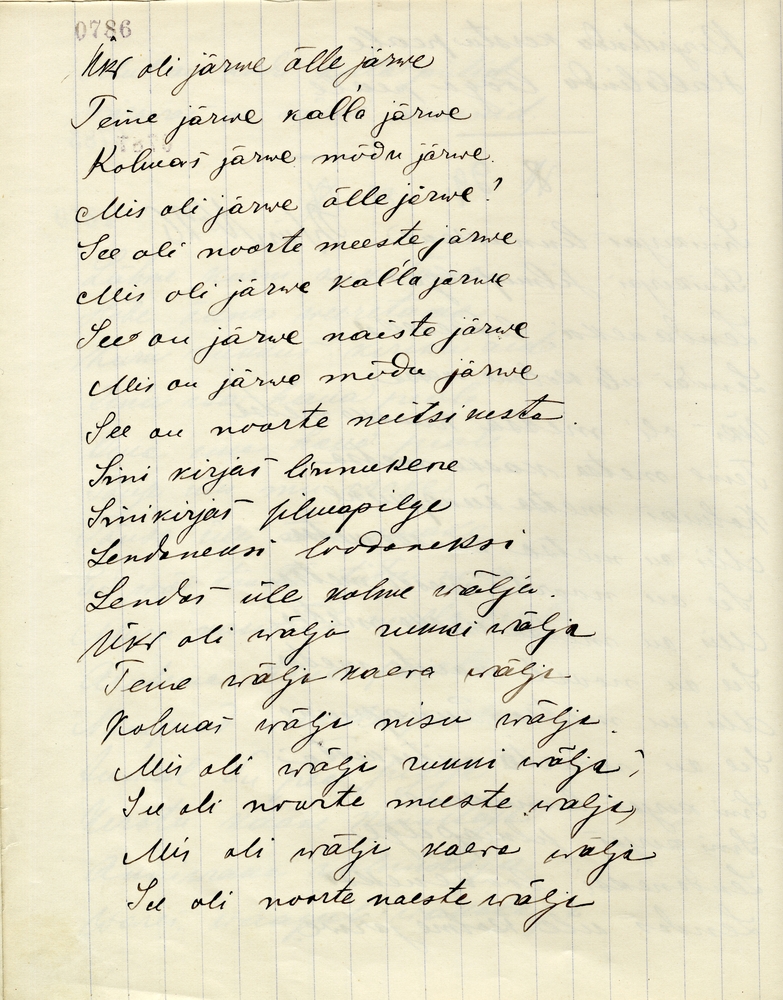 0786
Üks oli järwe õlle järwe
Teine järwe kalla järwe
Kolmas järwe mõdu järwe.
Mis oli järwe õlle järwe?
See oli noorte meeste järwe
Mis oli järwe kalla järwe
See on järwe naiste järwe
Mis on järwe mõdu järwe
See on noorte neitsikesta.
Sini kirjas linnukene
Sinikirjas silmapilge
Lendaneksi loodaneksi
Lendas üle kolme wälja.
Üks oli wälja rukki wälja
Teine wälja kaera wälja
Kolmas wälja nisu wälja.
Mis oli wälja rukki wälja?
See oli noorte meeste walja,
Mis oli wälja kaera wälja
See oli noorte naeste wälja